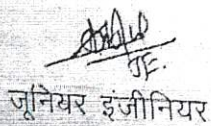 JE.
जूनियर इंजीनियर